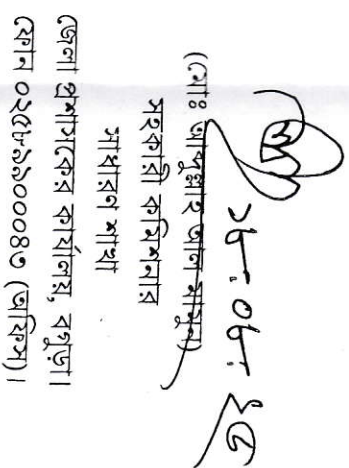 ১৮-০৮-২৫
(মোঃ আব্দুল্লাহ আল মামুন)
সহকারী কমিশনার
সাধারন শাখা
জেলা প্রশাসকের কার্যালয়, বগুড়া।
ফোন ০২৫৮৯৯০০০৪৩ (অফিস)।